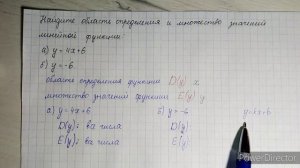 Найдите область определения и множество значений
линейной функции:
а) y = 4x+6
б) y = -6
область определения функции D(y) x
множество значений функции E(y) y
а) y = 4x+6 б) y = -6 y=kx+b
D(y): все числа D(y)
E(y): все числа E(y):
PowerDirector